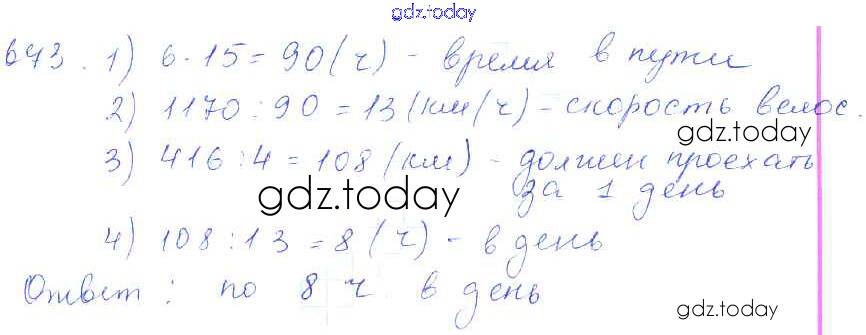 gdz.today
643. 1) 6·15=90(ч) - время в пути
2) 1170:90=13(км/ч) - скорость велос.
gdz.today
3) 416:4=108(км) - должен проехать
за 1 день
gdz.today
4) 108:13=8(ч) - в день
Ответ: по 8 ч в день
gdz.today